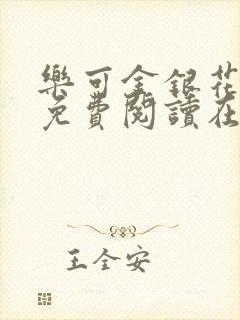 樂可金銀花
免費閱讀在
王全安